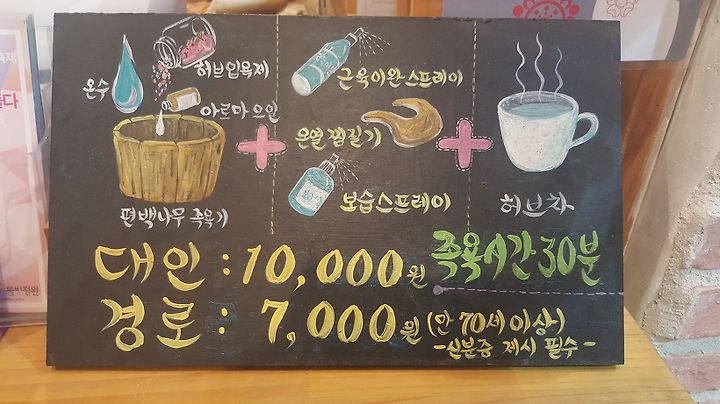 온수
허브입욕제
아로마 오일
편백나무 족욕기
근육이완스프레이
온열찜질기
보습스프레이
허브차
대인 : 10,000원
족욕시간 30분
경로 : 7,000원 (만 70세 이상)
-신분증 제시 필수-